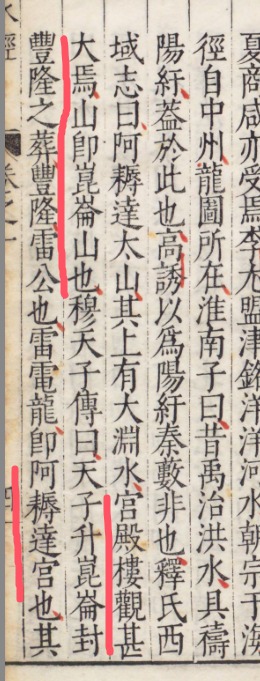 夏商咸亦受焉李尤盟津銘洋洋河水朝宗于海
徑自中州龍圖所在淮南子曰昔禹治洪水具禱
陽紆蓋於此也高誘以為陽紆秦藪非也釋氏西
域志曰阿耨達太山其上有大淵水宮殿樓觀甚
大焉山即崑崙山也穆天子傳曰天子升崑崙封
豐隆之葬豐隆雷公也雷電龍即阿耨達宮也其